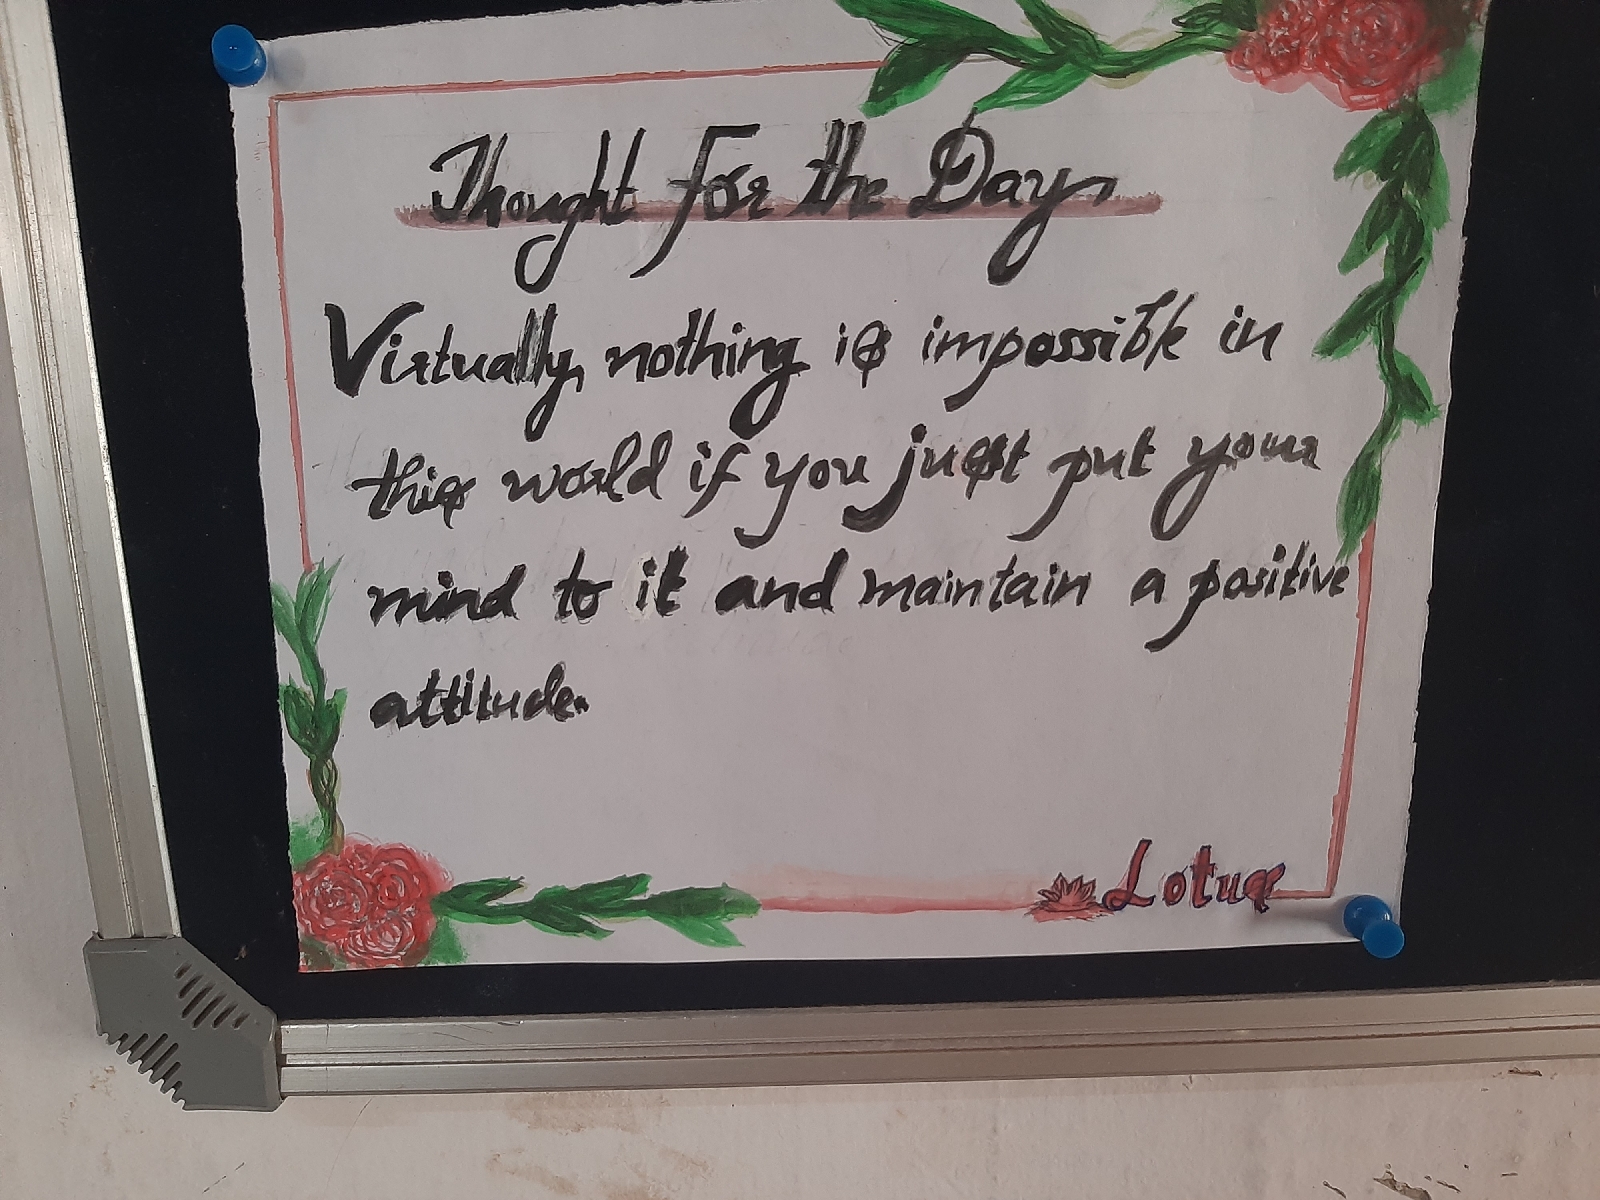 Thought For the Day
Virtually nothing is impossible in
this world if you just put your
mind to it and maintain a positive
attitude.
Lotus